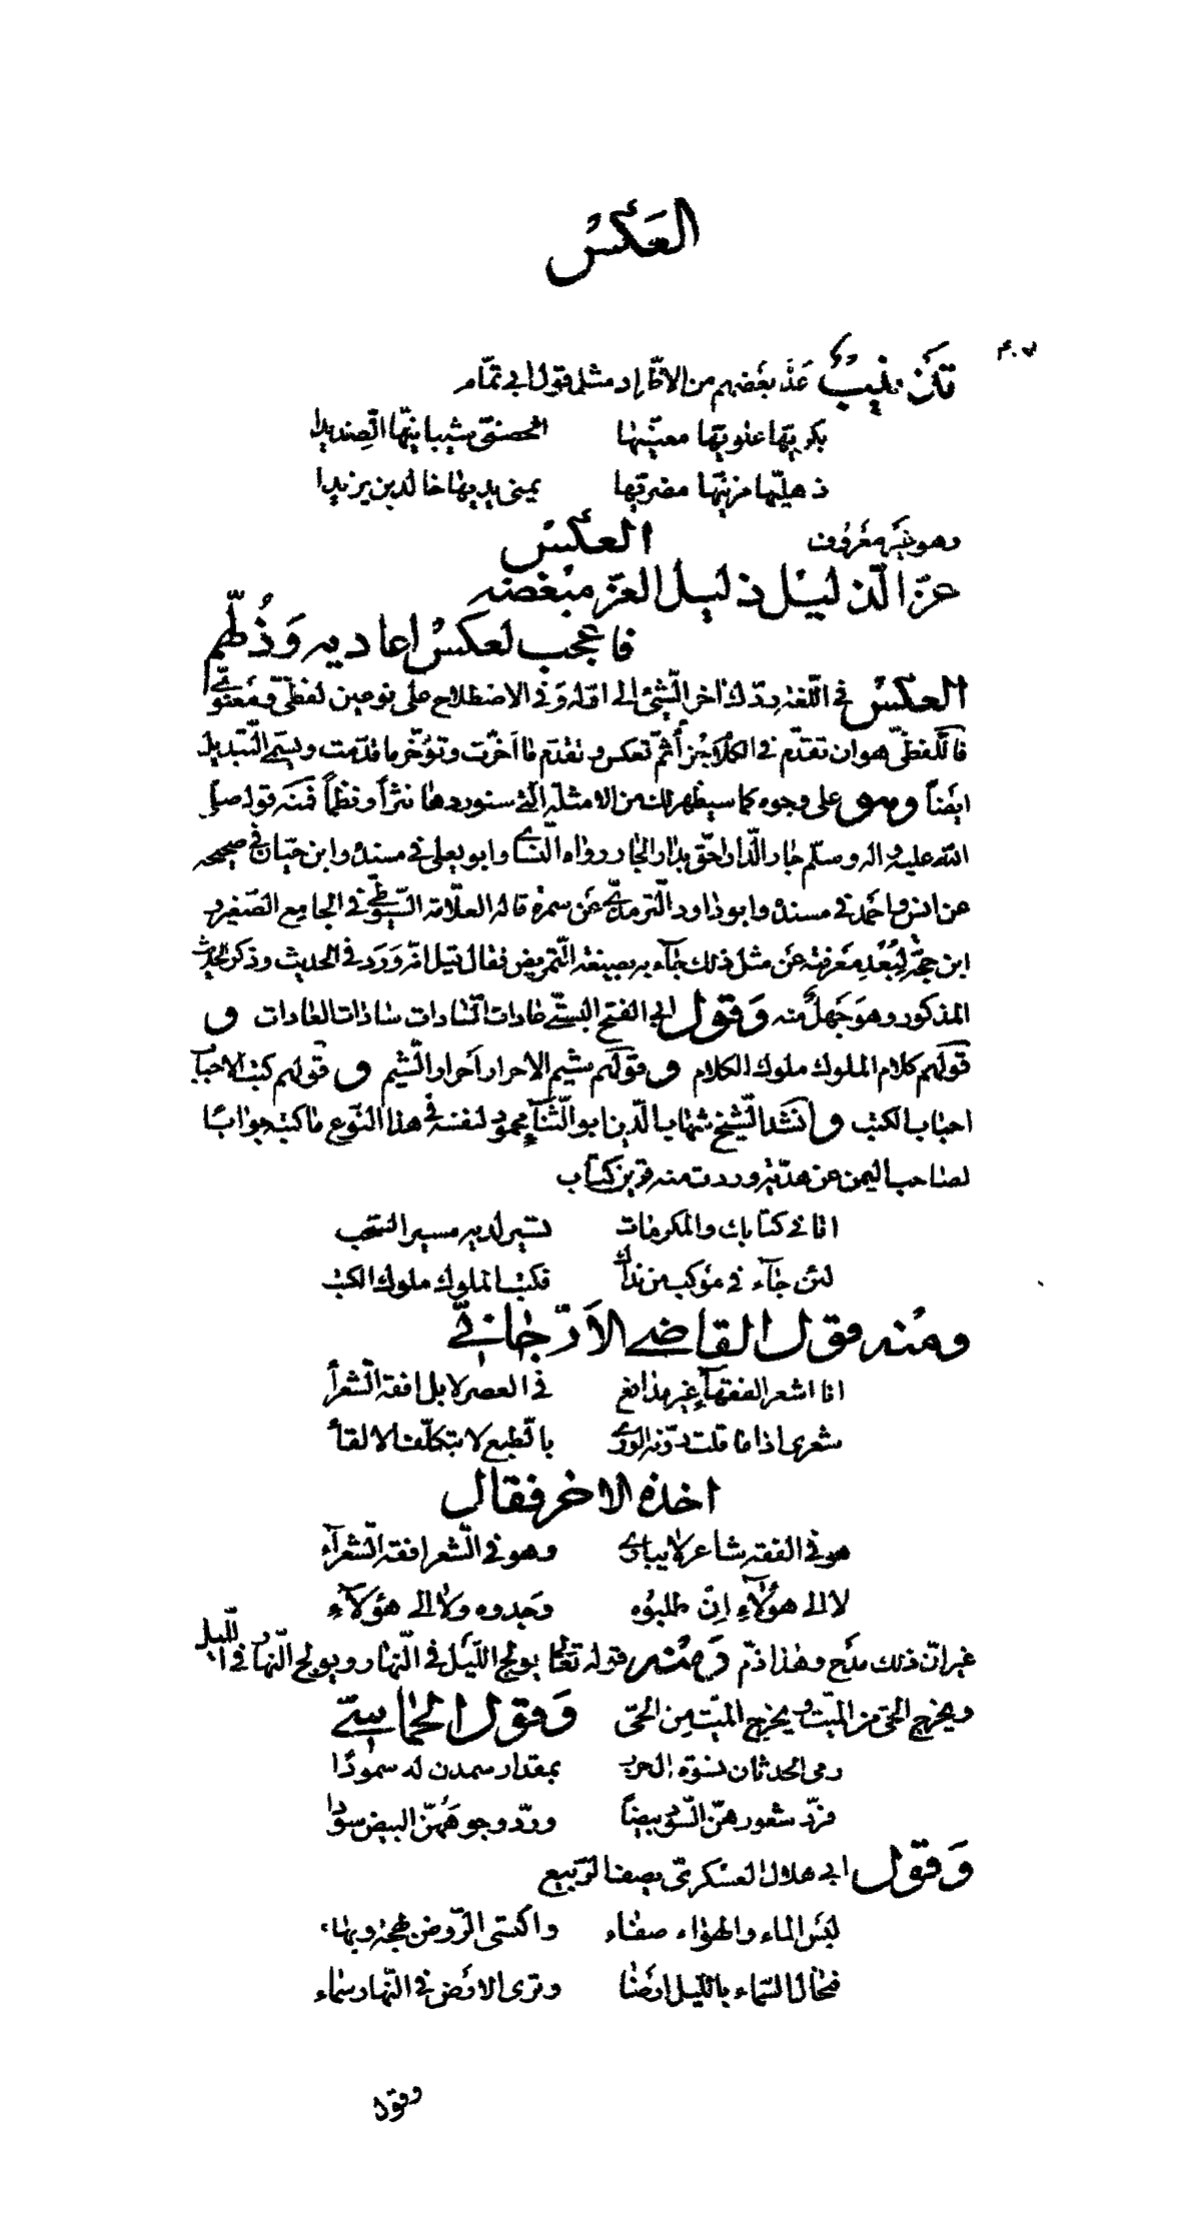 العَكسُ
٣٠٤
تَذنيبٌ عَدَّ بعَضهم من الاطّراد مثل قول ابي تمّام
بكريّها علويّها صعبيّها الحصنيّ شيبانيّها الصّنديدا
ذهليّها مرّيّها مضريّها يمنى يديها خالد بن يزيدا
وهو فيه معَروف العكسُ
عزّ الذّليل ذليل العزّ مبغضه
فاعجب لعكس اعاديه وَذُلّهم
العكسُ في اللّغة ردّك اخر الشّئ الى اوّله وَفي الاصطلاح على نوعين لفظيّ ومَعنويّ
فاللّفظيّ هو ان تقدّم في الكلام جُزأً ثمّ تعكس وتقدّم ما اَخّرت وتؤخّر ما قدّمت ويسمّى التّبديل
ايضاً وهو على وجوه كما سيظهر لك من الامثلة الّتي سنوردها نثراً ونظماً فمنه قوله صلى
الله عليه واله وسلّم جار الدّار احقّ بدار الجار رواه النّسائي وابو يعلى في مسنده وابن حبّان في صحيحه
عن انس واحَمد في مسنده وابو داود والتّرمذيّ عَن سمرة قاله العلّامة السّيوطيّ في الجامع الصّغير و
ابن حجّة لِبُعْدِ مَعرفته عَن مثل ذلك جآء به بصيغة التّمريض فقال قيل انّه وَرَدَ في الحديث وذكر الحديث
المذكور وهوَ جَهلٌ منه وَقول ابي الفتح البستيّ عادات السّادات سادات العادات و
قولهم كلام الملوك ملوك الكلام و قولهم شيم الاحرار اَحرار الشّيم و قولهم كتب الاحباب
احباب الكتب وانشد الشّيخ شهاب الدّين ابو الثّنآءِ محمود لنفسه في هذا النّوع ما كتبه جوابًا
لصاحب اليمن عن هديّة وردت منه قرين كتاب
اتاني كتابك والمكرمات تسير لديه مسير السّحب
لئن جآء في موَكب من نداك فكتب الملوك ملوك الكتب
ومنه قول القاضي الاَرّجانيّ
انا اشعر الفقهآءِ غير مدافع في العصر لا بل افقه الشّعرآ
شعري اذا ما قلت دوّنه الورى بالطّبع لا بتكلّف الالقآ
اخذه الاخر فقال
هو في الفقه شاعر لا يبارى وهو في الشّعر افقه الشّعرآءِ
لا الى هؤلآءِ اِنّ طلبوُه وجَدوه ولا الى هؤلآءِ
غير انّ ذلك مَدح وهذا ذمّ وَمنه قوله تعَالى يولج اللّيَل في النّهار ويولج النّهار في اللّيل
ويخرج الحيّ من الميّت ويخرج الميّت من الحيّ وَقول الحَماسيّ
رمى الحدثان نسوة ال حرب بمقدار سمدن له سموُدًا
فردّ شعورهنّ السّود بيضاً وردّ وجوهَهُنّ البيض سودا
وَقول ابي هلال العسَكريّ يصف الرّبيع
لبَس الماء والهواء صفاء واكتسى الرّوض بهجة وبهاء
فتخال السّماء باللّيل ارَضًا وترى الارَض في النّهار سماء
وقول